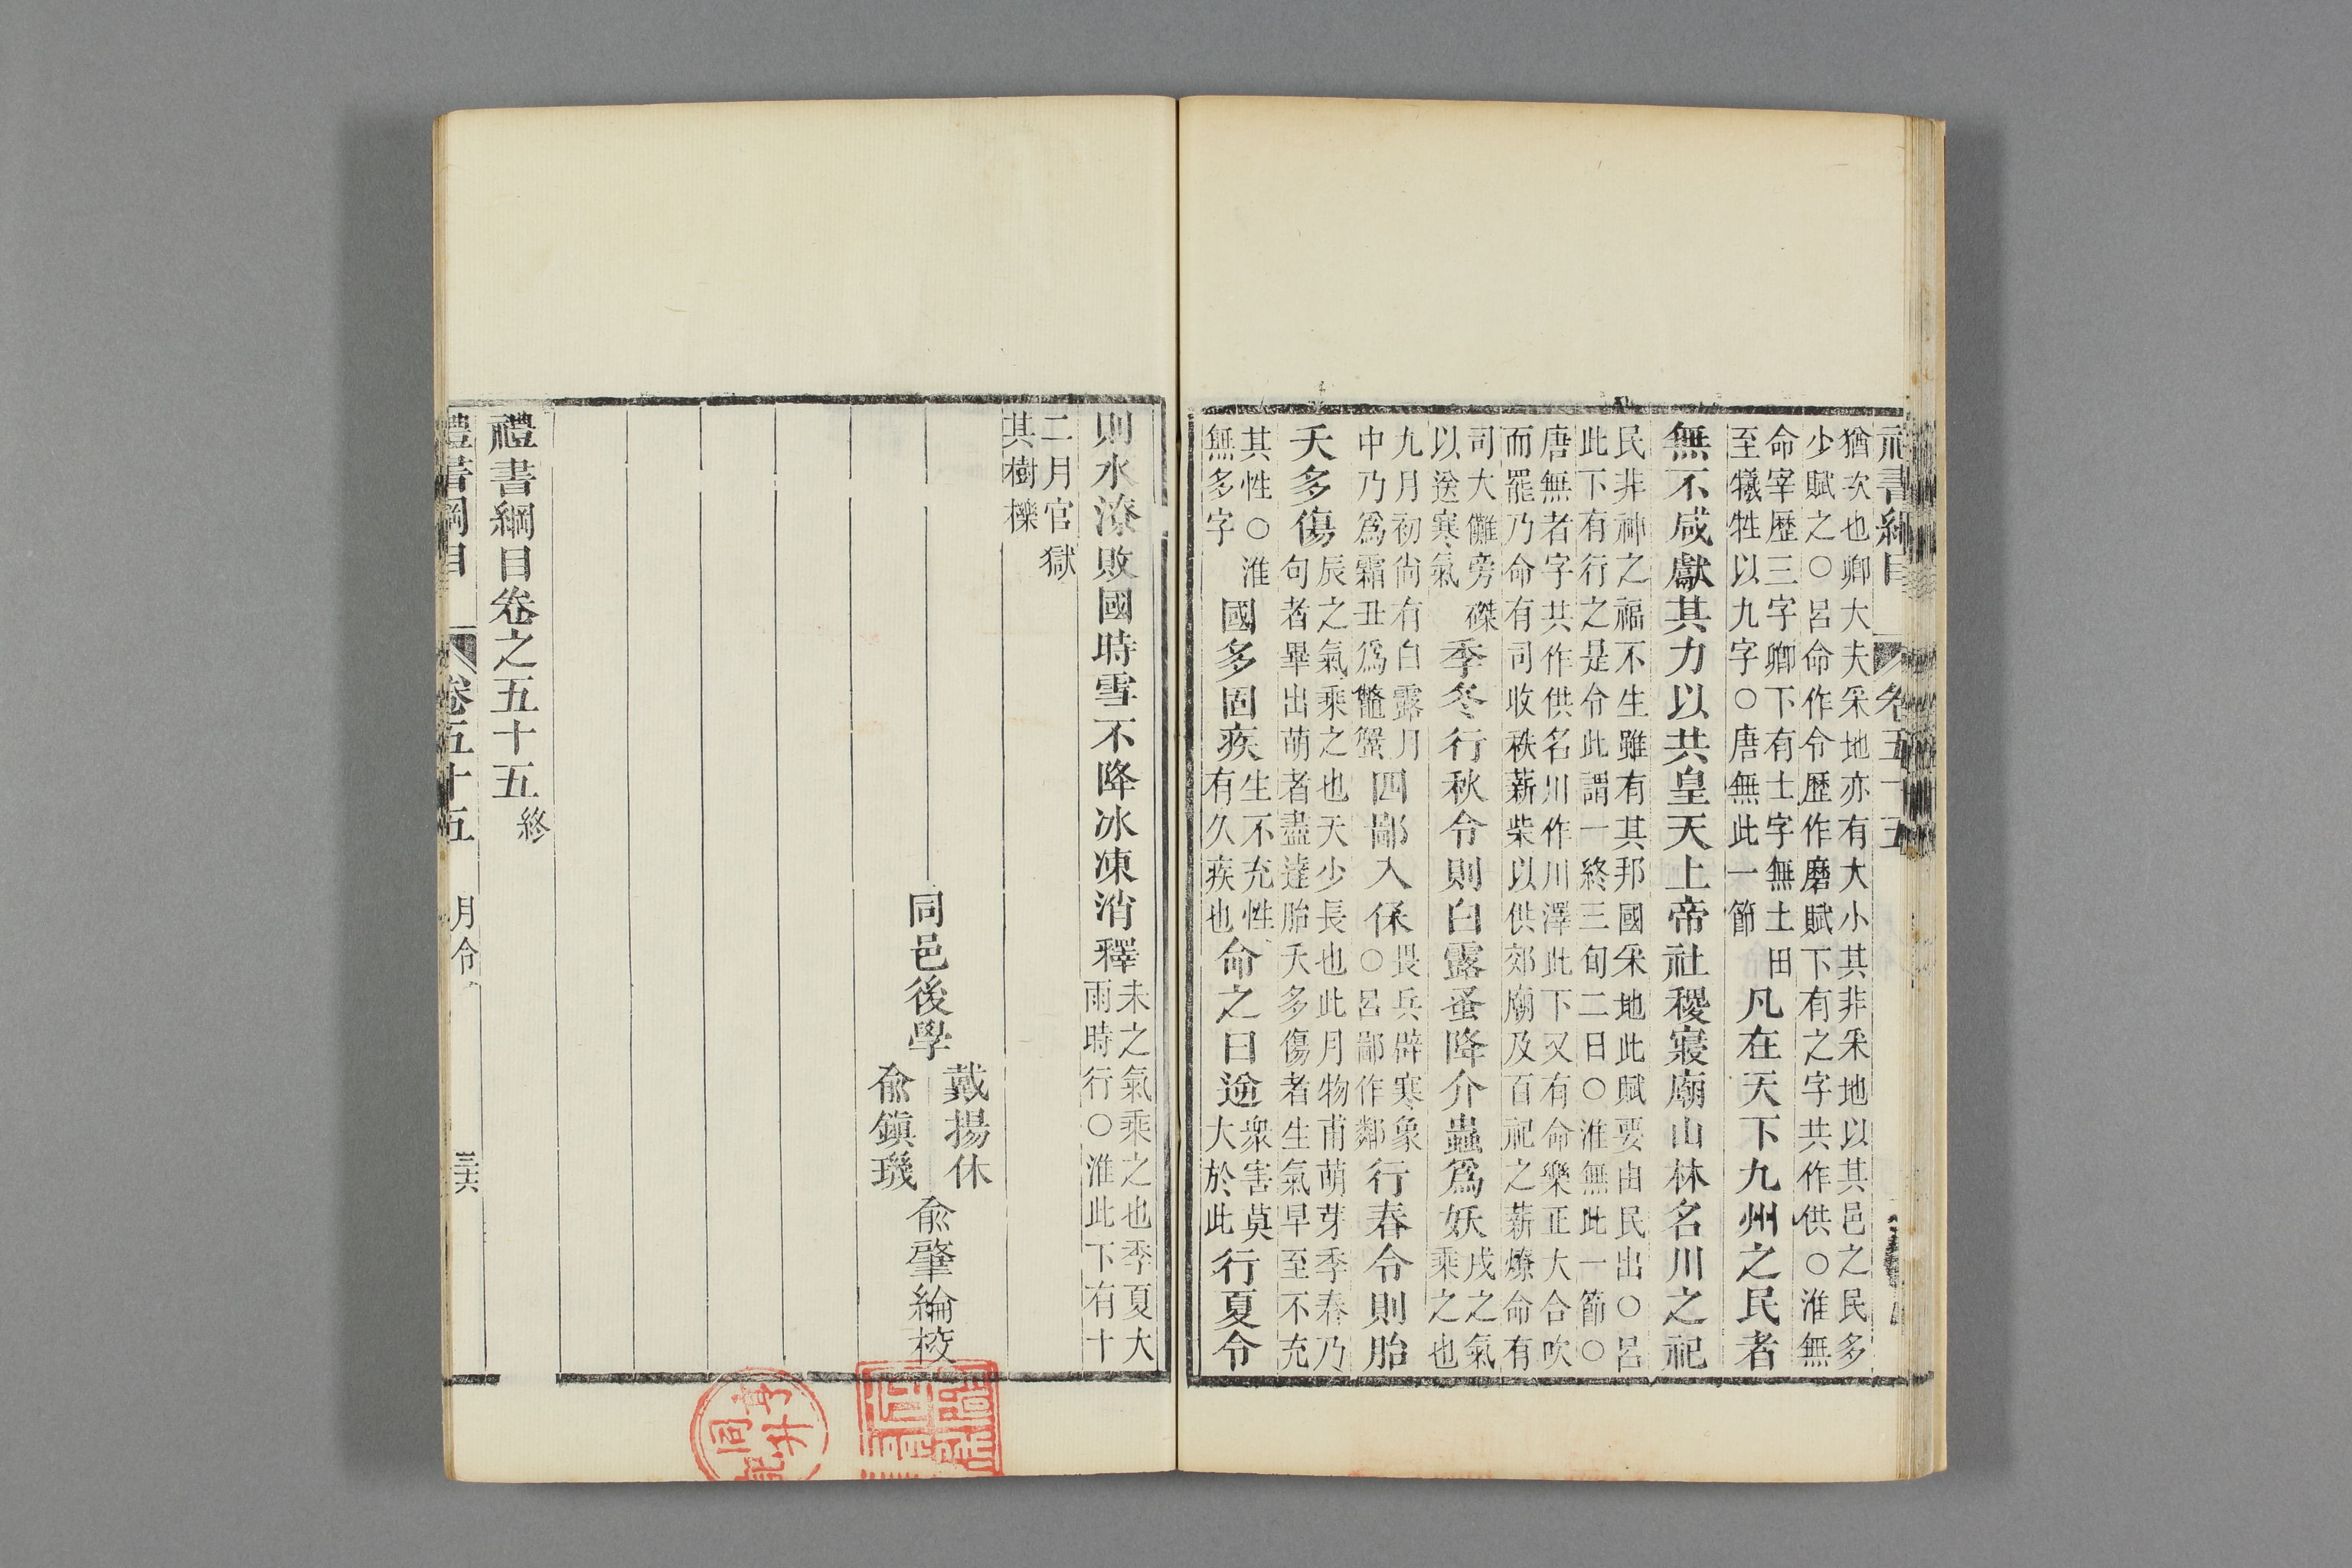 書綱目 卷五十五
猶次也卿大夫采地亦有大小其非采地以其邑之民多
少賦之○呂命作令歷作磨賦下有之字共作供○淮無
命宰歷三字卿下有士字無土田
至犧牲以九字○唐無此一節
凡在天下九州之民者
無不咸獻其力以共皇天上帝社稷寢廟山林名川之祀
民非神之福不生雖有其邦國采地此賦要由民出○呂
此下有行之是令此謂一終三旬二日○淮無此一節○
唐無者字共作供名川作川澤此下又有命樂正大合吹
而罷乃命有司收秩薪柴以供郊廟及百祀之薪燎命有
司大儺旁磔
以送寒氣
季冬行秋令則白露蚤降介蟲爲妖
戌之氣
乘之也
九月初尚有白露月
中乃爲霜丑爲鼈蟹
四鄙入保
畏兵辟寒象
○呂鄙作鄰
行春令則胎
夭多傷
辰之氣乘之也夭少長也此月物甫萌芽季春乃
句者畢出萌者盡達胎夭多傷者生氣早至不充
其性○淮
無多字
國多固疾
生不充性
有久疾也
命之曰逆
衆害莫
大於此
行夏令
則水潦敗國時雪不降冰凍消釋
未之氣乘之也季夏大
雨時行○淮此下有十
二月官獄
其樹櫟
同邑後學
戴揚休
俞鎮璣
俞肇綸校
禮書綱目卷之五十五終
禮書綱目 卷五十五 月令 三六